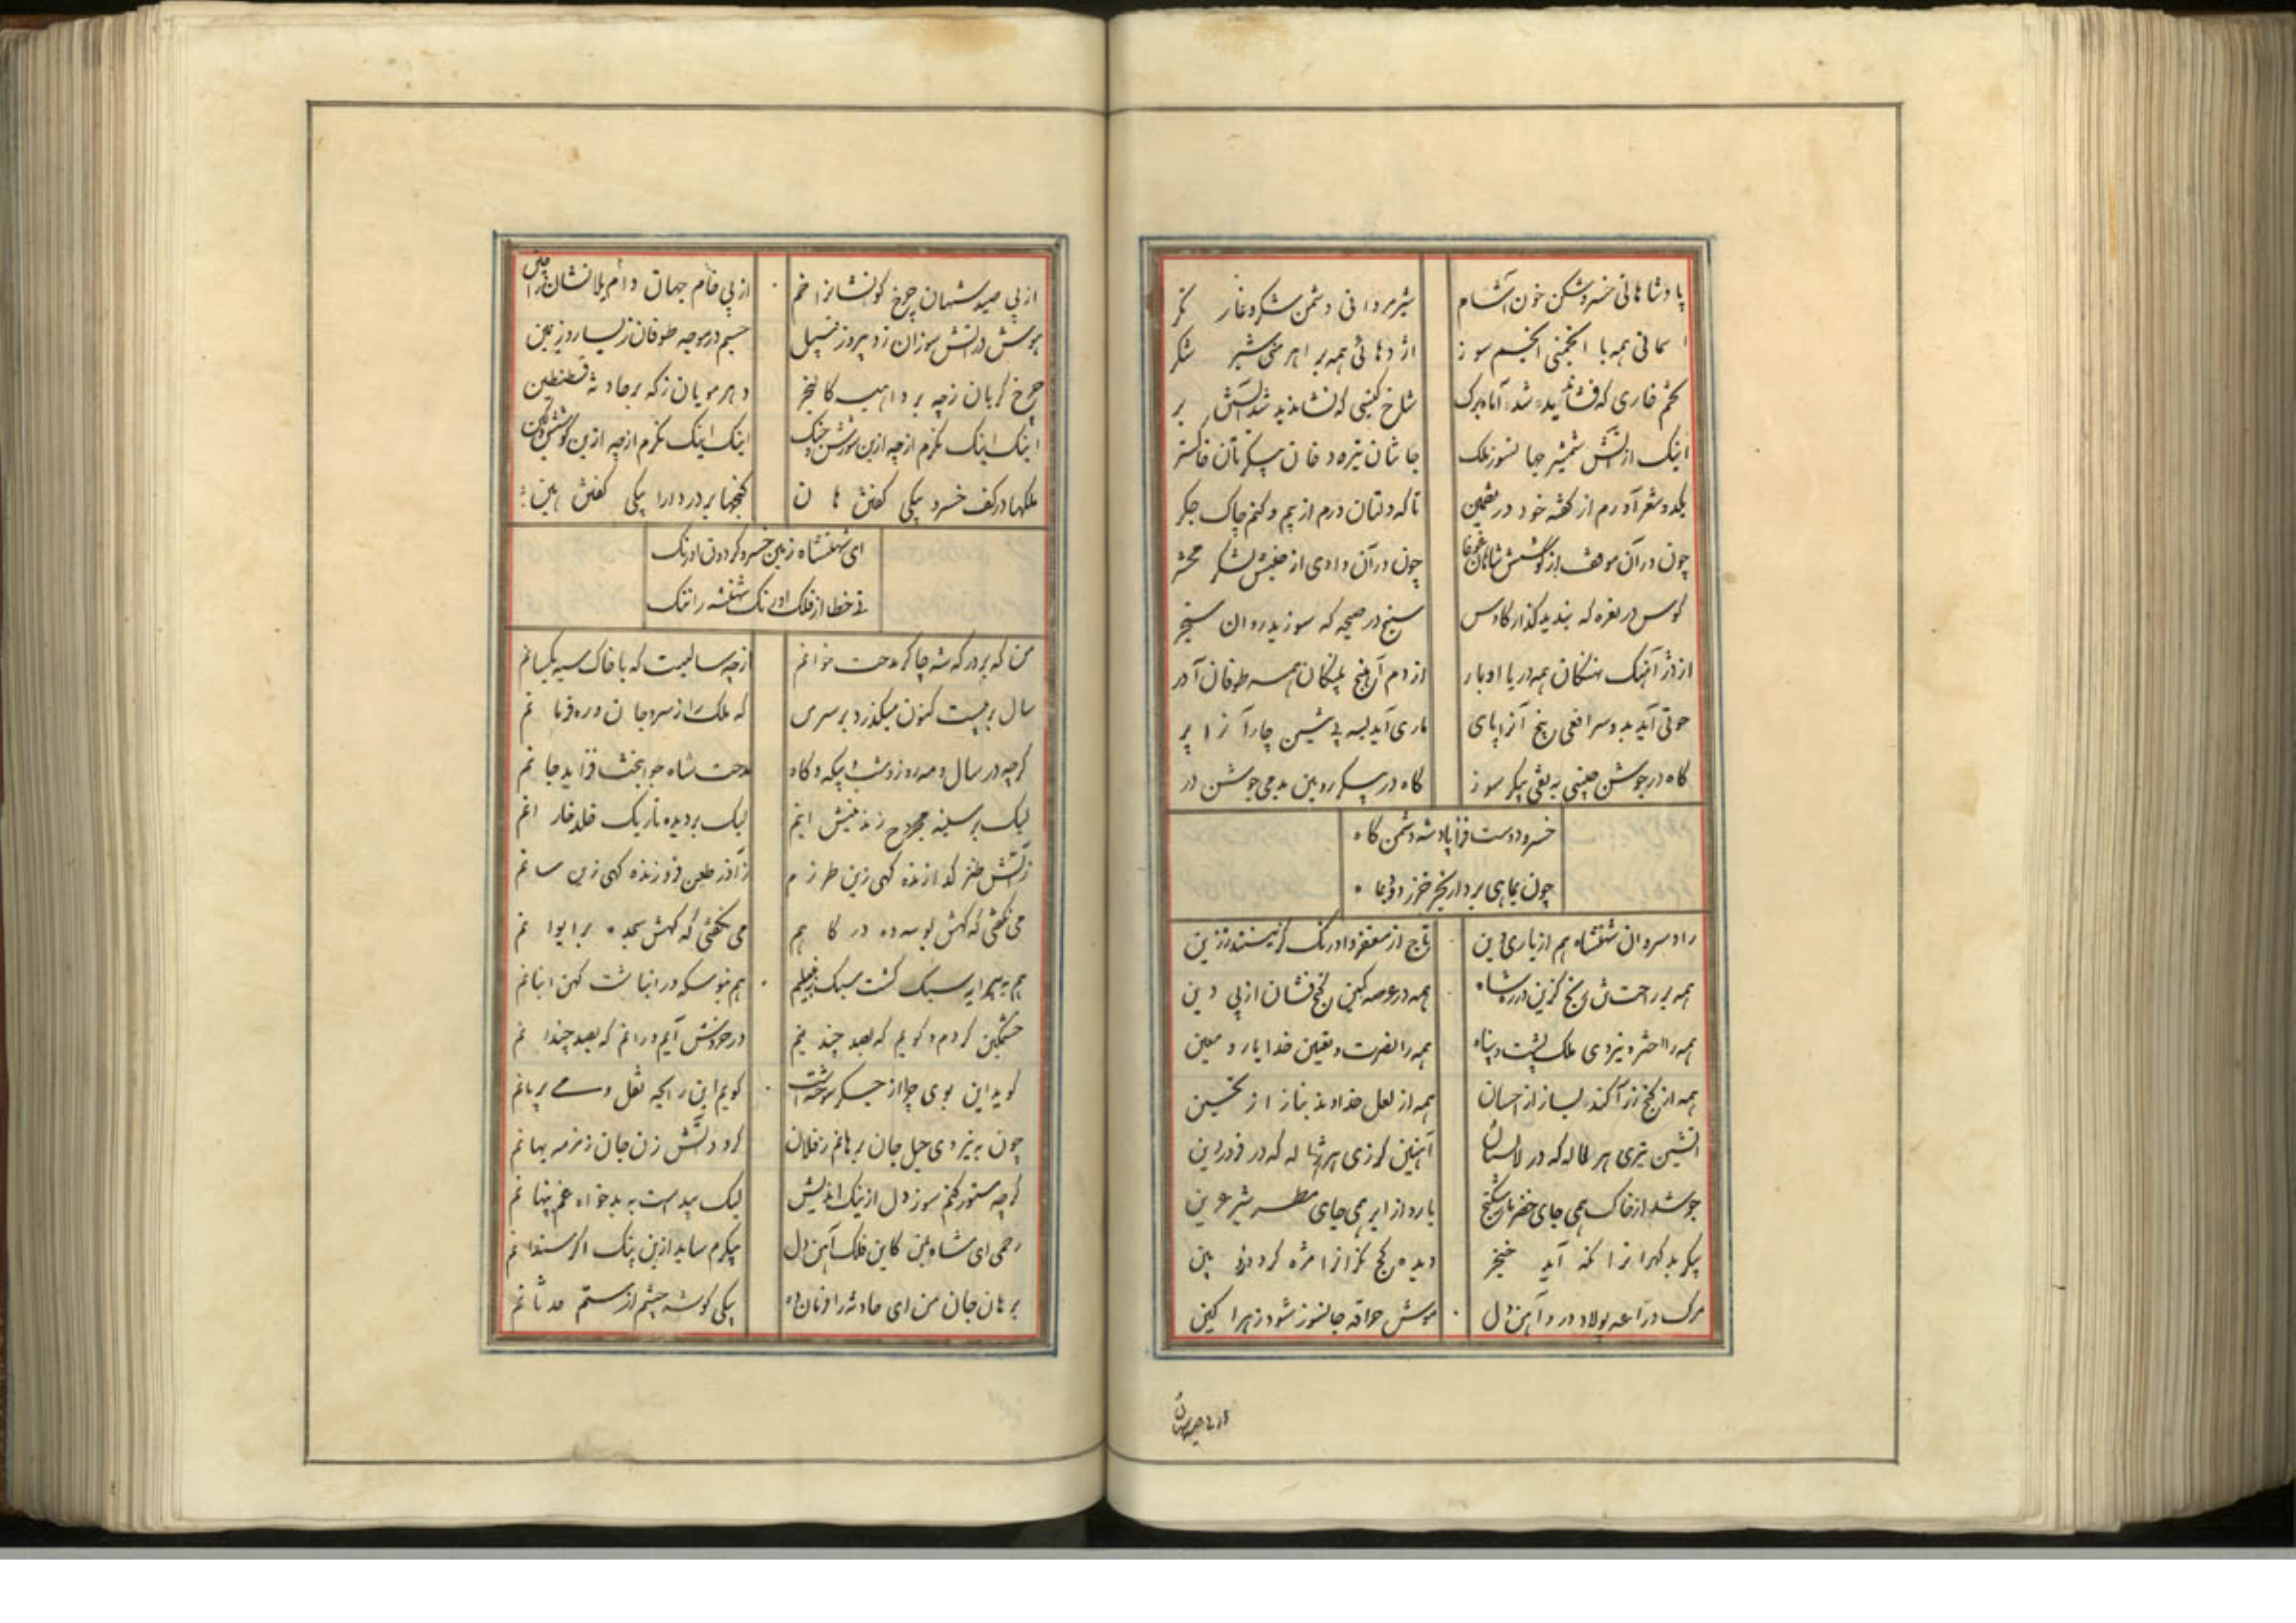 پادشاهانی خسروشکن خون آشام شیرمردانی دشمن شکر و غار نگر
آسمانی همه با انجمنی انجم سوز اژدهائی همه بر اهرمنی شیر شکر
تخم خاری که فشاندید شد آماده برک شاخ کینی که نشاندید شد آتش بر
اینک از آتش شمشیر جهانسوز ملک جانتان تیره دخان پیکرتان خاکستر
یکدو شعر آورم از گفته خود در تضمین تا که دلتان درم از بیم و کنم چاک جگر
چون در آن موقف از کوشش شاهان غوغا چون در آن وادی از جنبش لشکر محشر
کوس در نعره که بندید گذار کاوس سنج در صیحه که سوزید روان سنجر
از در آهنگ نهنگان همه دریا اوبار از دم آهنج پلنگان همه طوفان آور
حوتی آید بدو سر افعی پنج آنرا پای ماری آید بسه پی شین چار آنرا پر
گاه در جوشن چینی به تفی پیکر سوز گاه در پیکر رویین بدمی جوشن در
خسرو دوست فزا پادشه دشمن کاه
چون بماهی بردار بخرخز روی بماه
راد سروان شهنشاه هم از یاری دین تاج از مغفر و اورنگ گزیدند ز زین
همه بر راحتشان رنج گزین در ره شاه همه در عرصه کین گنج فشان از پی دین
همه را اختر و نیروی ملک پشت و پناه همه را نصرت و یقین خدا یار و معین
همه از گنج زر آکند بساز از احسان همه از لعل خداوند بناز از تحسین
آتشین تیری هر لاله که در لالستان آهنین گرزی هر ژاله که در فروردین
جوشد از خاک همی جای خضر مار شکنج بارد از ابر همی جای مطر شیر عرین
پیکر بدگهرانرا نگه آید خنجر دیده کج نگرانرا مژه گردد زوبین
مرگ دراعه پولاد درد آهن دل موش حراقه جانسوز شود زهرا کین
از پی صید شهان
از پی صید شهان چرخ کوانشانرا خم از پی خام جهان دام یلانشان را چین
هوش در آتش سوزان زد پیروز نسپل جسم در موجه طوفان ز یسار و ز یمین
چرخ گریان ز چه بر داهیه کالنجر دهر مویان ز که بر حادثه قسطنطین
اینک اینک نگرم از چه ازین شورش جنگ اینک اینک نگرم از چه ازین کوشش کین
ملکها در کف خسرو یکی گفتش هان گنجها بر در دارا یکی گفتش هین
ای شهنشاه زمین خسرو گردون اورنگ
نی خطا از فلک اورنگ شهنشه را ننگ
من که بر درگه شه چاکر مدحت خوانم از چه سالیست که با خاک سیه یکسانم
سال بر بیست کنون میگذرد بر سر من که ملک را ز سر و جان در ره فرمانم
گرچه در سال و مه و روز و شب و بیگه و گاه مدحت شاه جوانبخت فزاید جانم
لیک بر سینه مجروح زند نیش اینم لیک بر دیده تاریک خلد خار آنم
ز آتش طنز گدازنده گهی زین طرزم ز آذر طعن فروزنده گهی زین سانم
می نگفتی که گهش بوسه ده درگاهم می نگفتی که گهش سجده بر ایوانم
هم به پیرایه سبک گشت سبک زنبیلم هم بنوسکه در انباشت کهن انبانم
خشمگین گردم و گویم که بصد چند نیم در خروش آیم و رانم که بصد چندانم
گوید این بوی چرا از جگر سوخته است گویم این رایحه نقل و می ریحانم
چون به نیروی حیل جان برهانم ز فلان گردد آتش زن جان زمزمه بهمانم
گرچه مستور کنم سوز دل از نیک اندیش لیک پیداست به بدخواه غم پنهانم
رحمی ای شاه بمن کاین فلک آهن دل پیکرم ساید ازین پتک اگر سندانم
برهان جان من ای حادثه راونان ده بیکی گوشه چشم از ستم حدثانم